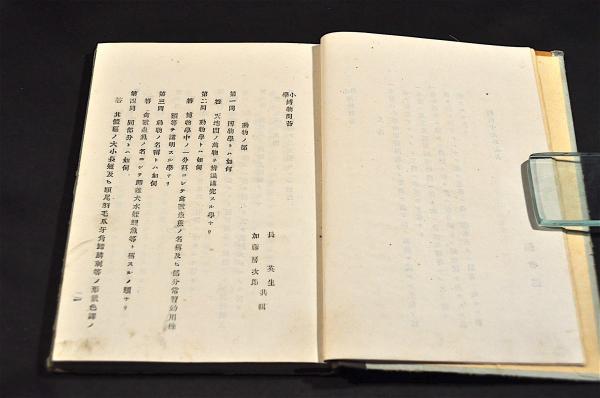 小學博物問答
長 英生 共輯
加藤次郎
動物ノ部
第一問 博物學トハ如何
答 天地間ノ萬物ヲ辨識講究スル學ナリ
第二問 動物學トハ如何
答 博物學中ノ一分科ニシテ禽獸虫魚ノ名稱及ヒ部分常習効用種
類等ヲ講明スル學ナリ
第三問 動物ノ名稱トハ如何
答 禽獸虫魚ノ名ニシテ犬水蛭鯉魚等ト稱スルノ類ナリ
第四問 同部分トハ如何
答 其體軀ノ大小長短及ヒ頭尾羽毛爪牙角蹄鱗刺等ノ形狀色澤ノ